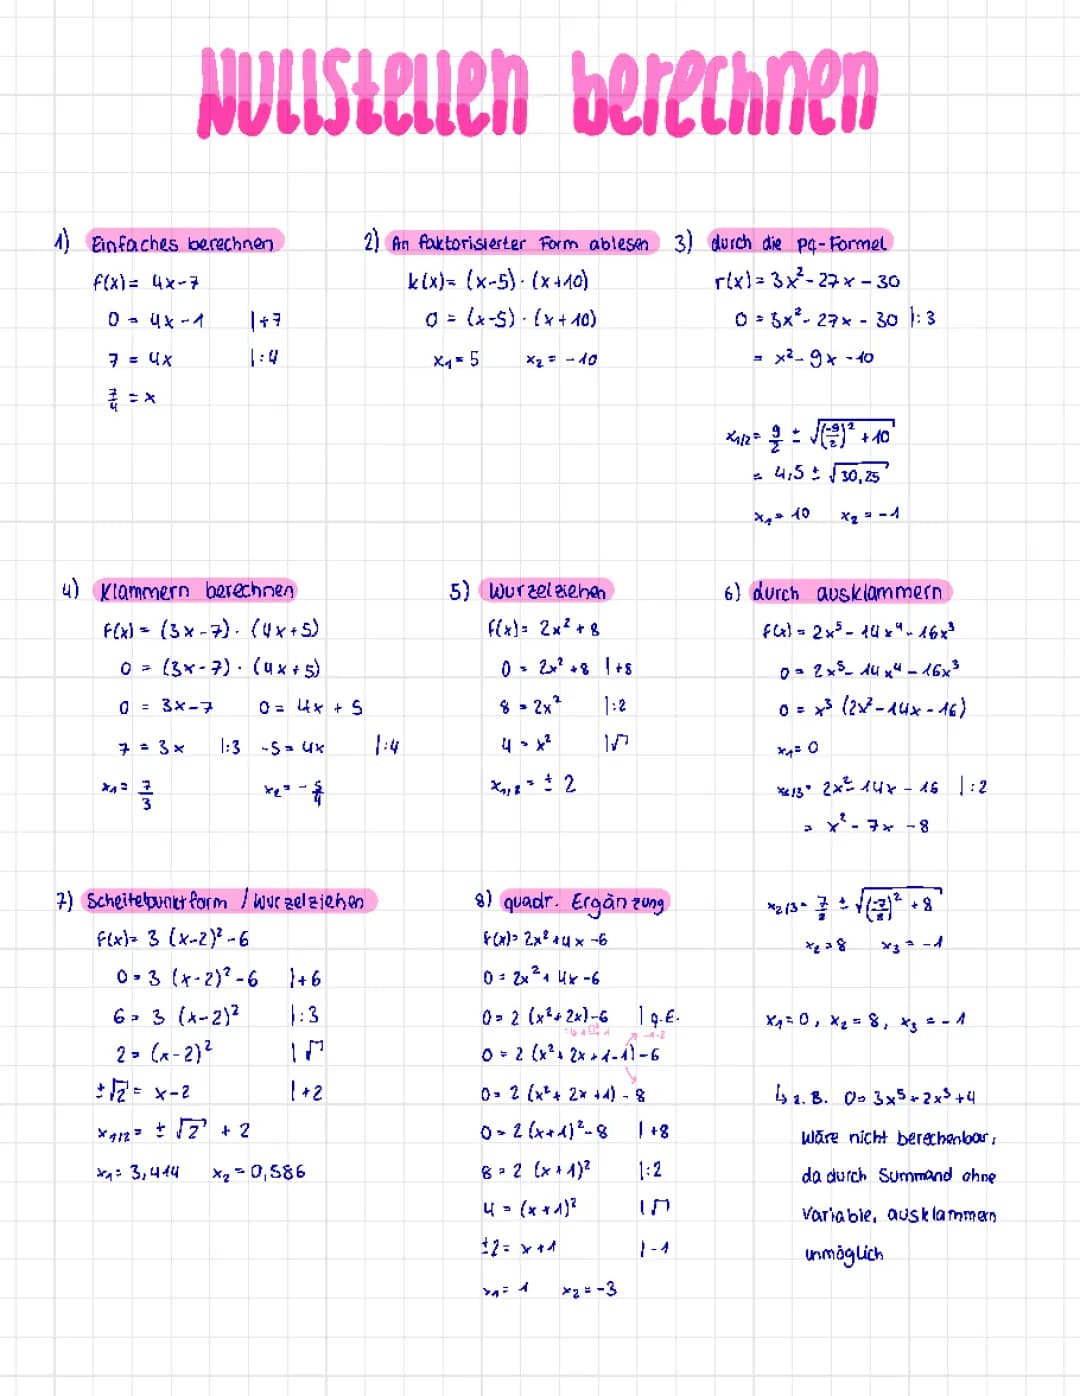 Nullstellen berechnen
1) Einfaches berechnen
f(x) = 4x-7
0 = 4x-1 |+7
7 = 4x |:4
7/4 = x
2) An faktorisierter Form ablesen
k(x) = (x-5) · (x+10)
0 = (x-5) · (x+10)
x₁ = 5 x₂ = -10
3) durch die pq-Formel
r(x) = 3x² - 27x - 30
0 = 3x² - 27x - 30 |:3
= x² - 9x - 10
x₁/₂ = 9/2 ± √((-9/2)² + 10)
= 4,5 ± √30,25
x₁ = 10 x₂ = -1
4) Klammern berechnen
f(x) = (3x-7) · (4x+5)
0 = (3x-7) · (4x+5)
0 = 3x-7 0 = 4x + 5
7 = 3x |:3 -5 = 4x |:4
x₁ = 7/3 x₂ = -5/4
5) Wurzelziehen
f(x) = 2x² + 8
0 = 2x² + 8 |+8
8 = 2x² |:2
4 = x² |√
x₁,₂ = ± 2
6) durch ausklammern
f(x) = 2x⁵ - 14x⁴ - 16x³
0 = 2x⁵ - 14x⁴ - 16x³
0 = x³ (2x² - 14x - 16)
x₁ = 0
x₂/₃ = 2x² 14x - 16 |:2
= x² - 7x - 8
x₂/₃ = 7/2 ± √((-7/2)² + 8)
x₂ = 8 x₃ = -1
x₁ = 0, x₂ = 8, x₃ = -1
↳ z.B. 0 = 3x⁵ + 2x³ + 4
wäre nicht berechenbar,
da durch Summand ohne
Variable, ausklammern
unmöglich
7) Scheitelpunktform / Wurzelziehen
f(x) = 3 (x-2)² - 6
0 = 3 (x-2)² - 6 |+6
6 = 3 (x-2)² |:3
2 = (x-2)² |√
±√2 = x-2 |+2
x₁/₂ = ± √2 + 2
x₁ = 3,414 x₂ = 0,586
8) quadr. Ergänzung
f(x) = 2x² + 4x - 6
0 = 2x² + 4x - 6
0 = 2 (x² + 2x) - 6 | q.E.
0 = 2 (x² + 2x + 1 - 1) - 6
0 = 2 (x² + 2x + 1) - 8
0 = 2 (x+1)² - 8 |+8
8 = 2 (x+1)² |:2
4 = (x+1)² |√
±2 = x+1 |-1
x₁ = 1 x₂ = -3